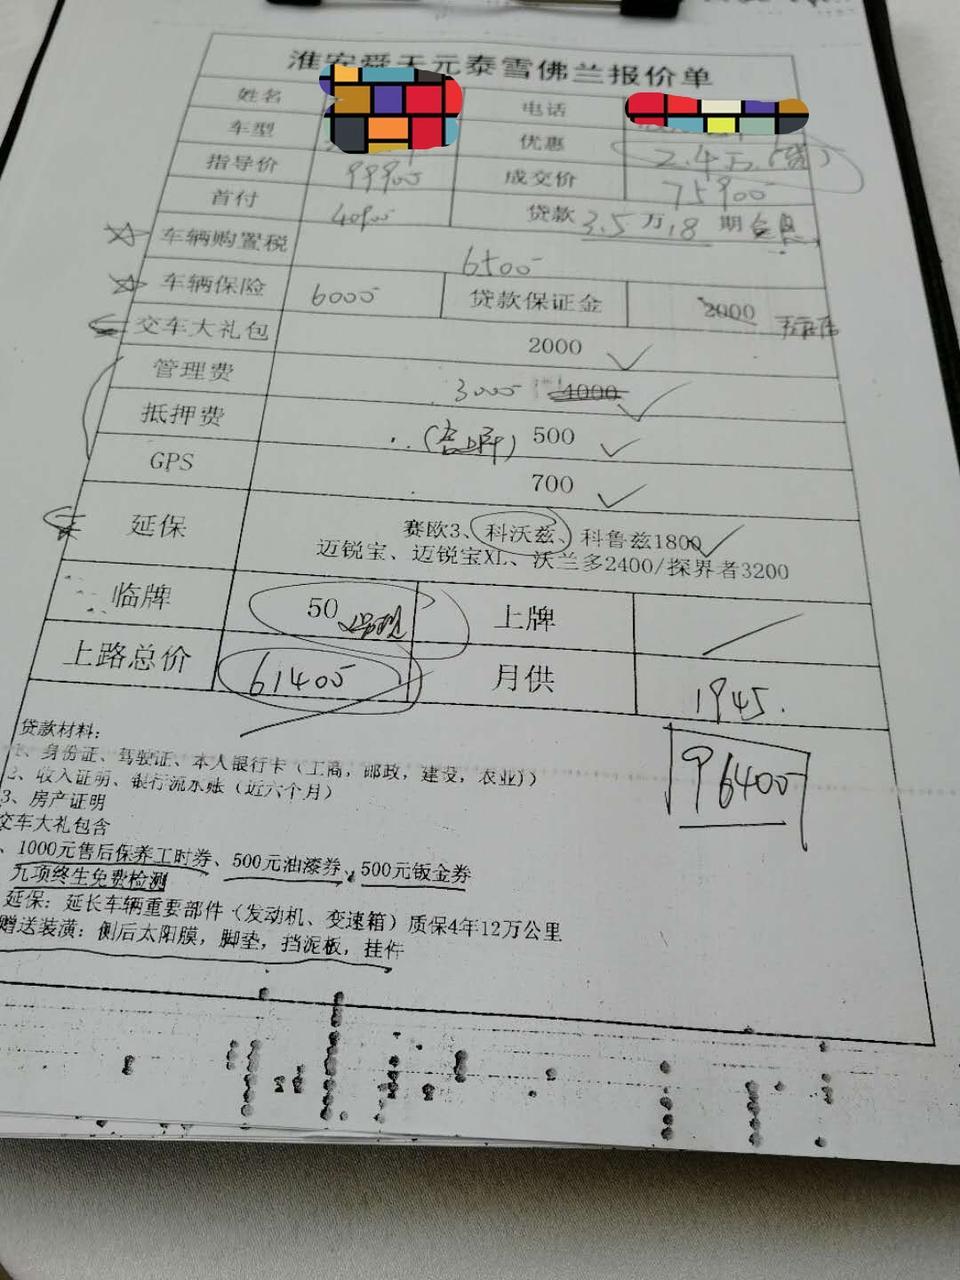 淮安舜天元泰雪佛兰报价单
姓名 电话
车型 优惠 2.4万(贷)
指导价 99900 成交价 75900
首付 40900 贷款 3.5万 18期
车辆购置税 6500
车辆保险 6000 贷款保证金 2000
交车大礼包 2000
管理费 3000 4000
抵押费 (含上牌) 500
GPS 700
延保 赛欧3、科沃兹、科鲁兹1800
迈锐宝、迈锐宝XL、沃兰多2400/探界者3200
临牌 50 上牌
上路总价 61400 月供 1945.
96400
贷款材料:
1、身份证、驾驶证、本人银行卡(工商,邮政,建设,农业))
2、收入证明、银行流水账(近六个月)
3、房产证明
交车大礼包含
、1000元售后保养工时券、500元油漆券、500元钣金券
九项终生免费检测
延保:延长车辆重要部件(发动机、变速箱)质保4年12万公里
赠送装潢:侧后太阳膜,脚垫,挡泥板,挂件